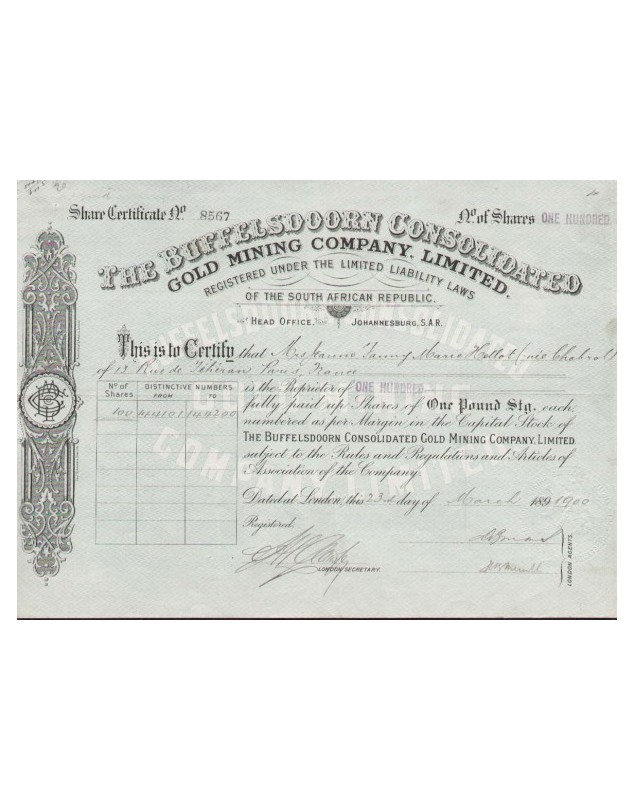 Share Certificate No 8567
No. of Shares ONE HUNDRED
THE BUFFELSDOORN CONSOLIDATED
GOLD MINING COMPANY, LIMITED.
REGISTERED UNDER THE LIMITED LIABILITY LAWS
OF THE SOUTH AFRICAN REPUBLIC.
HEAD OFFICE, JOHANNESBURG, S.A.R.
This is to Certify that Mrs Jeanne Fanny Marie Hellot (née Chabrol)
of 13 Rue de Téhéran Paris, France
is the Proprietor of ONE HUNDRED
fully paid up Shares of One Pound Stg. each,
numbered as per Margin in the Capital Stock of
THE BUFFELSDOORN CONSOLIDATED GOLD MINING COMPANY, LIMITED.
subject to the Rules and Regulations and Articles of
Association of the Company.
Dated at London, this 23rd day of March 1891900
Registered:
LONDON SECRETARY.
LONDON AGENTS.
No of Shares
DISTINCTIVE NUMBERS
FROM TO
100 144101 144200